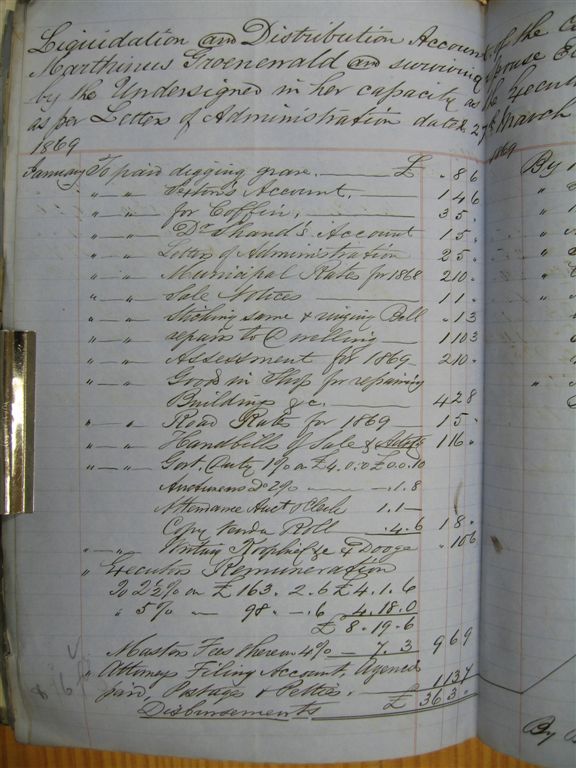 Liquidation and Distribution Account of the
Marthinus Groenewald and surviving Spouse
by the Undersigned in her capacity as
as per Letter of Administration dated 27th March
1869
January To paid digging grave. £ " 8 6
" " Sexton's Account, 1 4 6
" " for Coffin, 3 5 "
" " Dr Shand's Account 1 5 "
" " Letter of Administration 2 5 "
" " Municipal Rate for 1868 2 10 "
" " Sale Notices 1 1 "
" " Sticking same & ringing Bell " 13
" " repairs to Dwelling 1 10 3
" " Assessment for 1869 2 10 "
" " Goods in Shop for repairing
Building &c. 4 2 8
" " Road Rate for 1869 1 5 "
" " Handbills of Sale & 1 16 "
" " Govt. Duty 1% on £4.0.0 £0.0.10
2% - .1.8
Attendance Auct & Clerk 1.1 -
Copy Vendu Roll .4.6 1 8 "
" " Writing &c " 10 6
" Executors Remuneration
To 2½% on £163.2.6 £4.1.6
" 5% " 98 - .6 4.18.0
£8.19.6
Masters Fees thereon 4% - 7.3 9 6 9
" Attorneys Filing Account, Agency
paid, Postages & Petties. 1 13 7
Disbursements £ 36 3 "
By
By